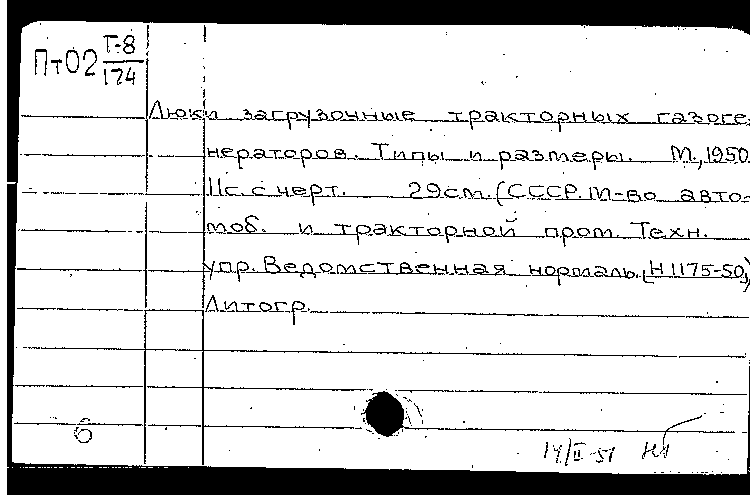 Пт02 Т-8/174
Люки загрузочные тракторных газоге-
нераторов. Типы и размеры. М., 1950.
11с. с черт. 29см. (СССР. М-во авто-
моб. и тракторной пром. Техн.
упр. Ведомственная нормаль. [Н 1175-50])
Литогр.
6
14/II-51